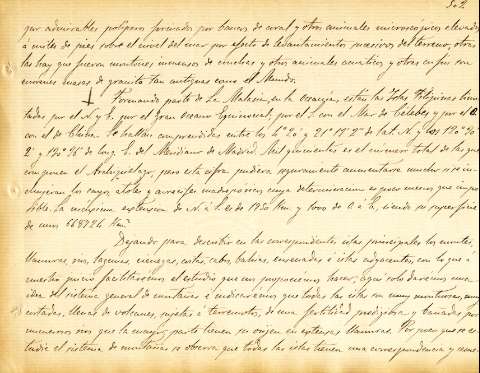 302
por admirables polipeos formados por bancos de coral y otros animales microscópicos elevados
á miles de pies sobre el nivel del mar por efecto de levantamientos sucesivos del terreno, otras
las hay que fueron montones inmensos de conchas y otros animales acuáticos y otras en fin son
enormes masas de granito tan antiguas como el Mundo.
Formando parte de La Malasia, en la Oceanía, están las Islas Filipinas limi-
tadas por el N. y E. por el Gran Oceano Equinoccial, por el S. con el Mar de Célebes y por el O.
con el de China. Se hallan comprendidas entre los 4° 20' y 21° 17' 2" de lat. N. y los 120° 30'
2' y 130° 26' de long. E. del Meridiano de Madrid. Mil quinientas es el número total de las que
componen el Archipiélago, pero esta cifra pudiera seguramente aumentarse mucho si se in-
cluyeran los cayos, islotes y arrecifes cuya determinacion es poco menos que impo-
sible. La máxima extension de N. á S. es de 1950 Km. y 1000 de O. á E., siendo su superficie
de unos Km².
Dejando para describir en las correspondientes islas principales los montes,
llanuras, rios, lagunas, cienegas, costas, cabos, bahías, ensenadas é islas adyacentes, con lo que á
nuestro juicio facilitaremos el estudio que nos proponemos hacer, aquí solo daremos una
idea del sistema general de montañas é indicaremos que todas las islas son muy montuosas,
llenas de volcanes, sujetas á terremotos, de una fertilidad prodigiosa y bañadas por
numerosos rios que la mayor parte tienen su origen en extensas llanuras. Por poco que se es-
tudie el sistema de montañas se observa que todas las islas tienen una correspondencia y